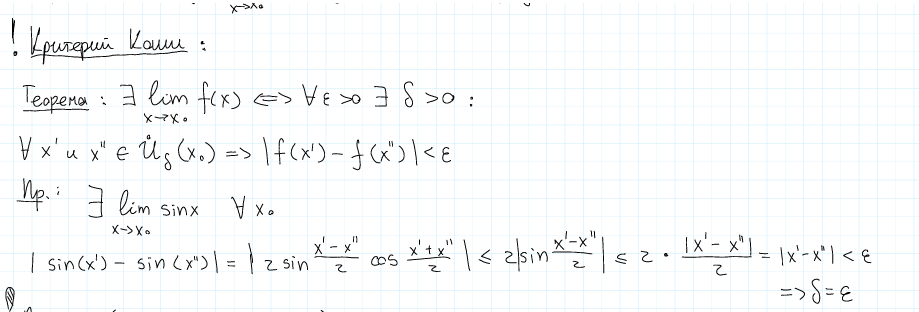 x→x₀
! Критерий Коши :
Теорема : ∃ lim f(x) ⟺ ∀ ε >0 ∃ δ >0 :
x→x₀
∀ x' и x" ∈ Ů_δ(x₀) => |f(x') - f(x")| < ε
Пр.: ∃ lim sinx ∀ x₀
x→x₀
| sin(x') - sin(x")| = | 2 sin (x' - x")/2 cos (x' + x")/2 | ≤ 2|sin (x' - x")/2| ≤ 2 · |x' - x"|/2 = |x' - x"| < ε
=> δ = ε